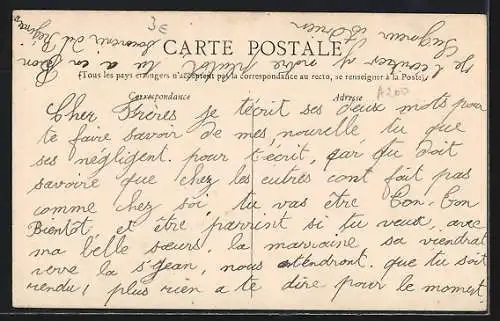 3E
CARTE POSTALE
(Tous les pays étrangers n'acceptent pas la correspondance au recto, se renseigner à la Poste)
Correspondance
Adresse
A200
Cher Frères je t'écrit ses deux mots pour
te faire savoir de mes nouvelle tu que
ses négligent. pour t'écrit, çar tu doit
savoire que chez les eutres cont fait pas
comme chez soi, tu vas être Ton. Ton
Bientôt et être parrint si tu veux, avec
ma belle sœurs. la marraine sa viendrat
verre la St Jean, nous attendront. que tu soit
rendu, plus rien a te dire pour le moment.
tu a en
souvenir du